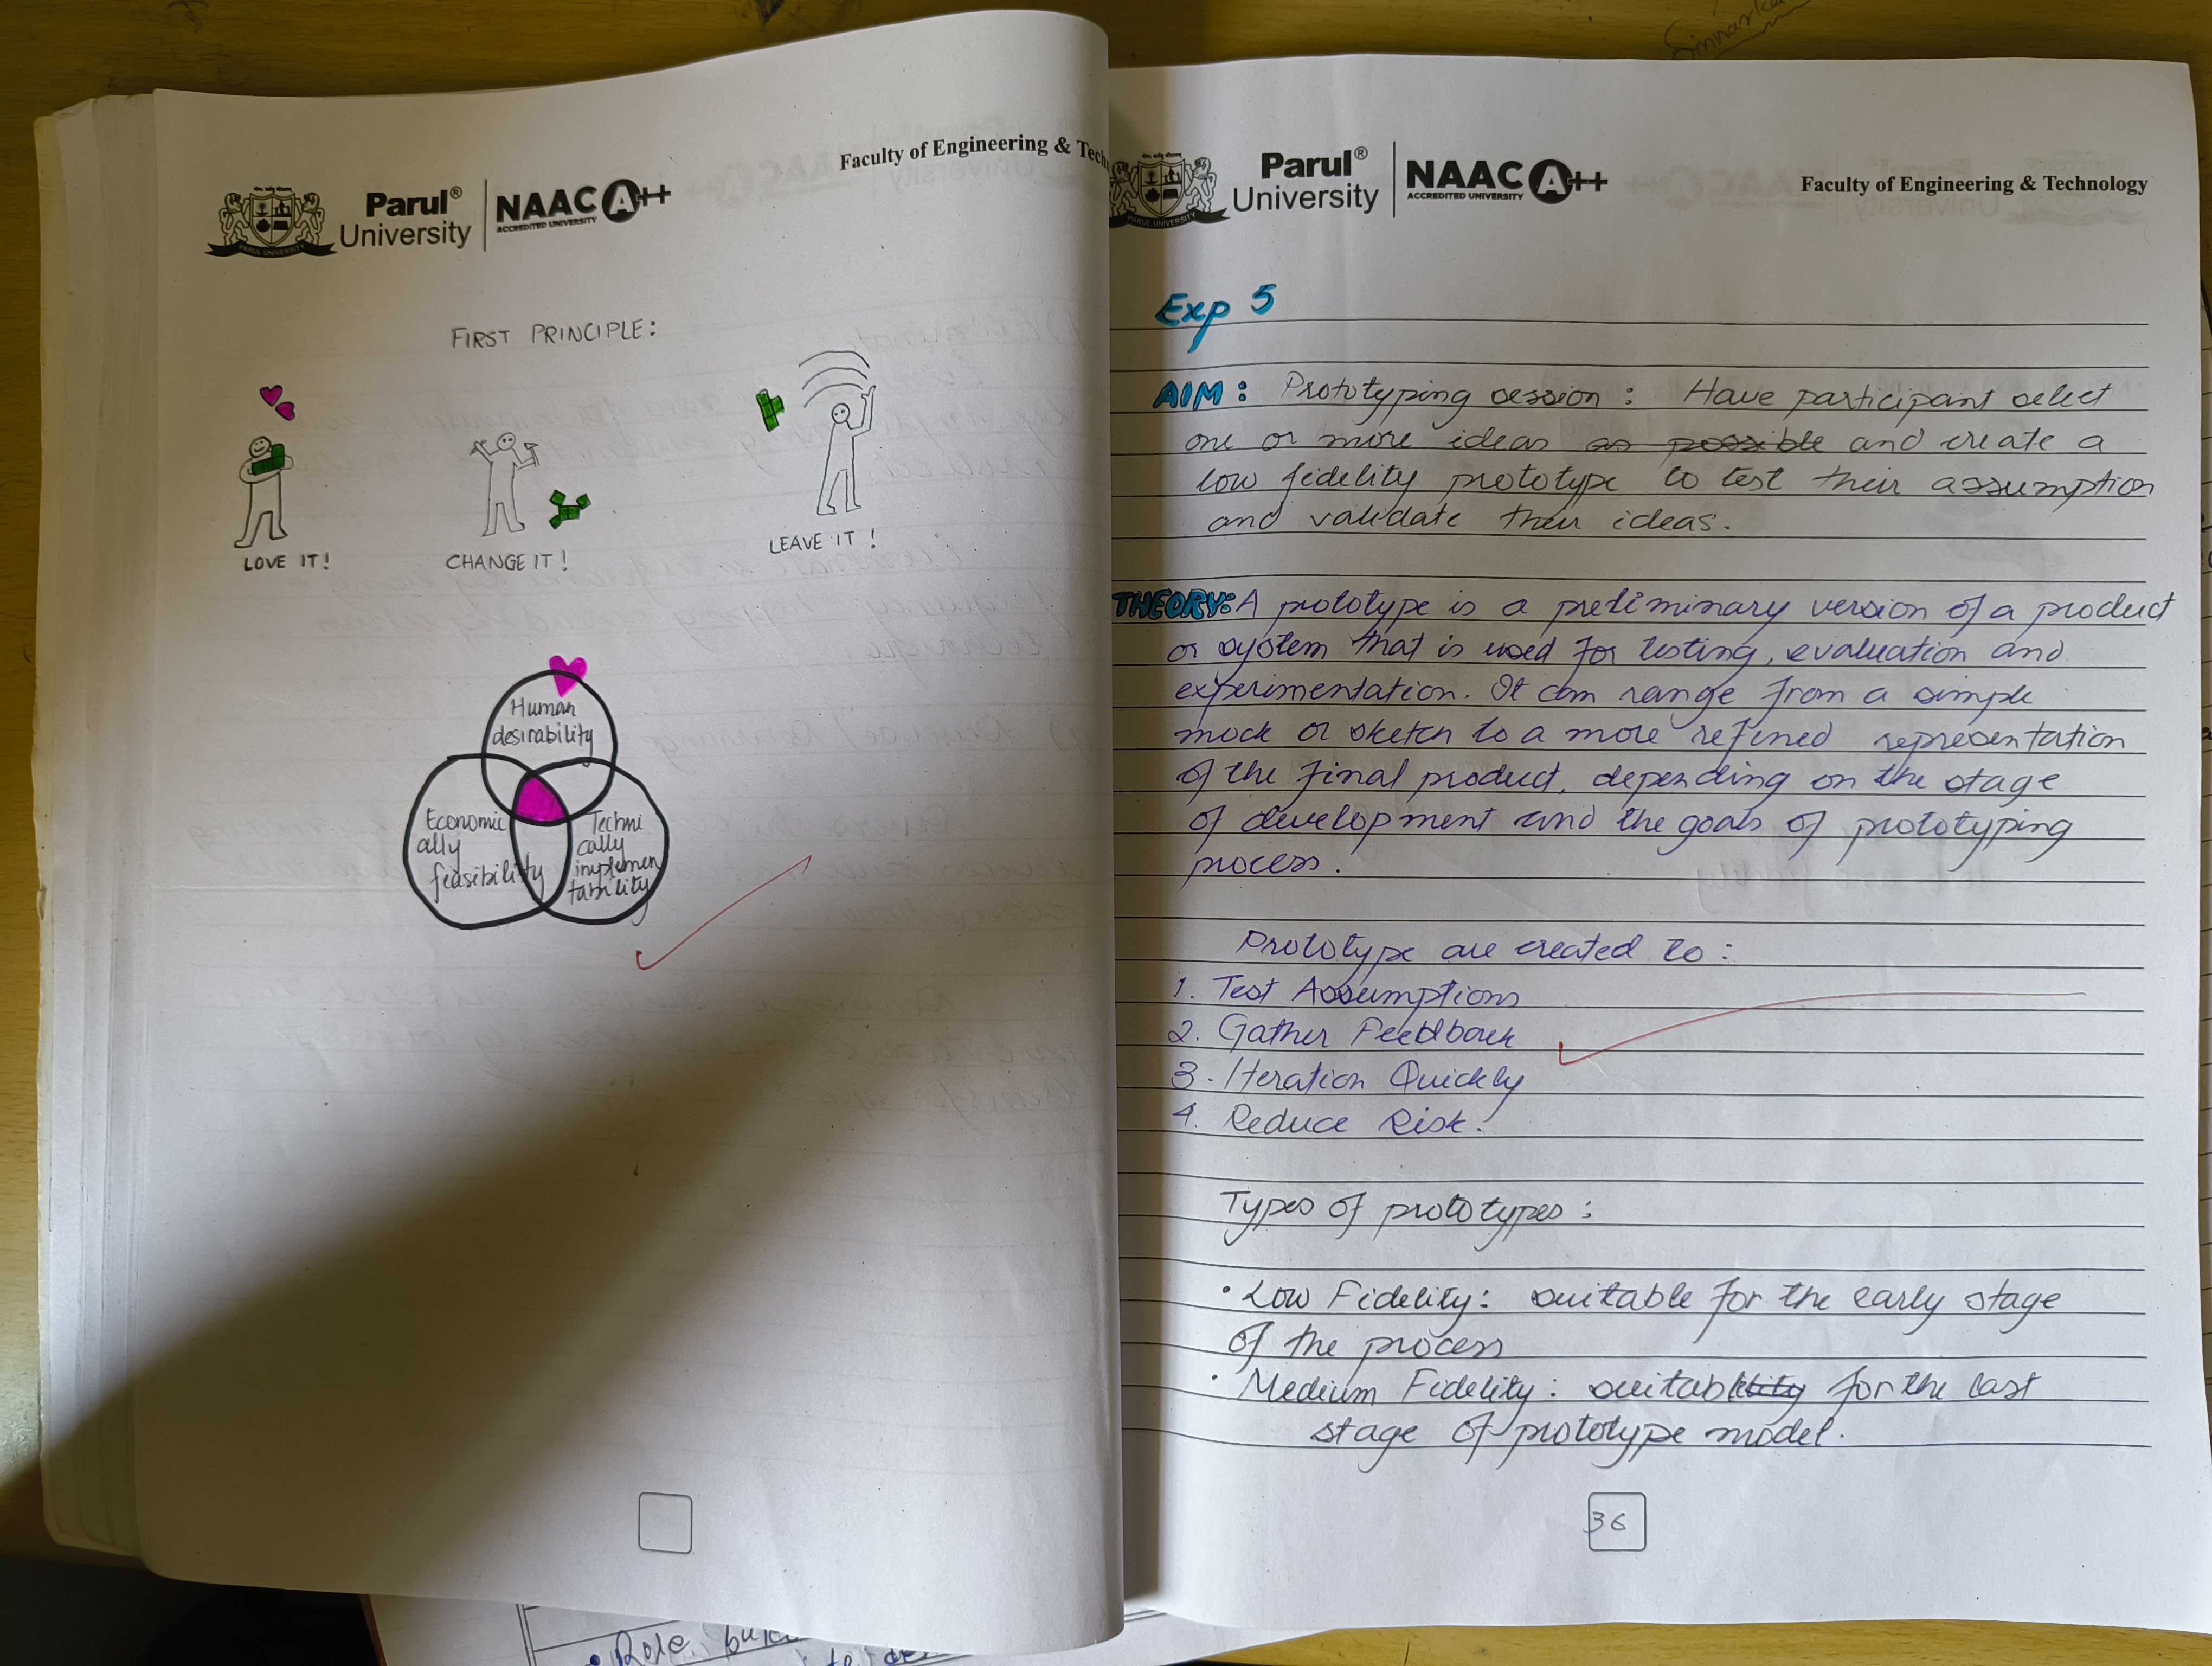 Faculty of Engineering & Tech
Parul®
University
NAAC A++
ACCREDITED UNIVERSITY
PARUL UNIVERSITY
FIRST PRINCIPLE:
LOVE IT!
CHANGE IT!
LEAVE IT!
Human
desirability
Economic
ally
feasibility
Techni
cally
implemen
tability
Parul®
University
NAAC A++
ACCREDITED UNIVERSITY
PARUL UNIVERSITY
Faculty of Engineering & Technology
Exp 5
AIM: Prototyping session: Have participant select
one or more ideas as possible and create a
low fidelity prototype to test their assumption
and validate their ideas.
THEORY: A prototype is a preliminary version of a product
or system that is used for testing, evaluation and
experimentation. It can range from a simple
mock or sketch to a more refined representation
of the final product, depending on the stage
of development and the goals of prototyping
process.
Prototype are created to:
1. Test Assumptions
2. Gather Feedback
3. Iteration Quickly
4. Reduce Risk.
Types of prototypes:
• Low Fidelity: suitable for the early stage
of the process
• Medium Fidelity: suitability for the last
stage of prototype model.
36
• Role